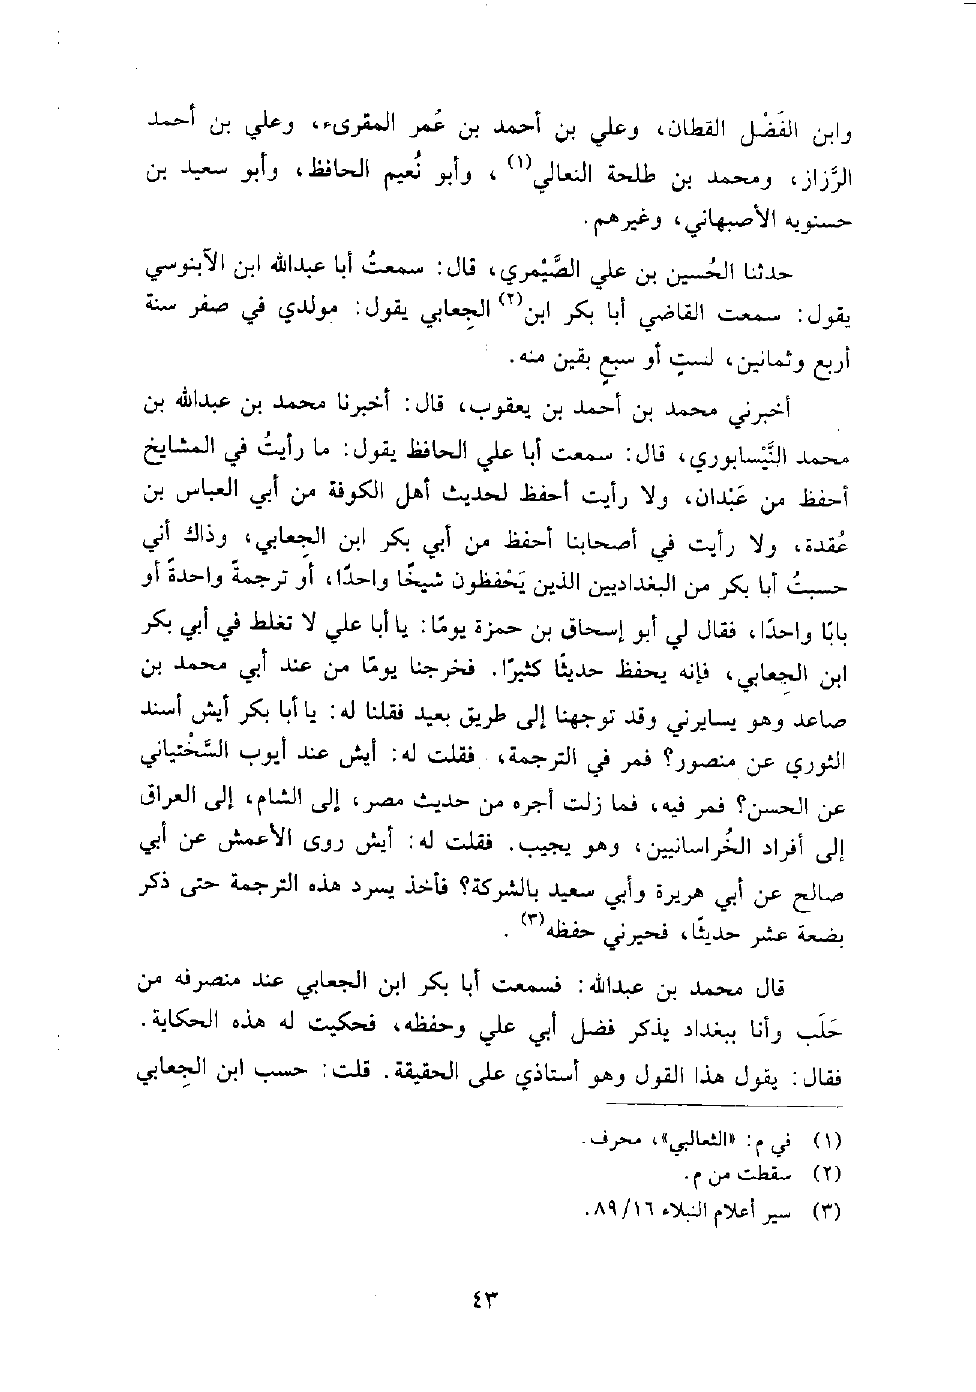 وابن الفَضْل القطان، وعلي بن أحمد بن عُمر المقرىء، وعلي بن أحمد
الرَّزاز، ومحمد بن طلحة النعالي(١)، وأبو نُعيم الحافظ، وأبو سعيد بن
حسنويه الأصبهاني، وغيرهم.
حدثنا الحُسين بن علي الصَّيْمري، قال: سمعتُ أبا عبدالله ابن الآبنوسي
يقول: سمعت القاضي أبا بكر ابن(٢) الجِعابي يقول: مولدي في صفر سنة
أربع وثمانين، لستٍ أو سبعٍ بقين منه.
أخبرني محمد بن أحمد بن يعقوب، قال: أخبرنا محمد بن عبدالله بن
محمد النَّيْسابوري، قال: سمعت أبا علي الحافظ يقول: ما رأيتُ في المشايخ
أحفظ من عَبْدان، ولا رأيت أحفظ لحديث أهل الكوفة من أبي العباس بن
عُقدة، ولا رأيت في أصحابنا أحفظ من أبي بكر ابن الجِعابي، وذاك أني
حسبتُ أبا بكر من البغداديين الذين يَحْفظون شيخًا واحدًا، أو ترجمةً واحدةً أو
بابًا واحدًا، فقال لي أبو إسحاق بن حمزة يومًا: يا أبا علي لا تغلط في أبي بكر
ابن الجِعابي، فإنه يحفظ حديثًا كثيرًا. فخرجنا يومًا من عند أبي محمد بن
صاعد وهو يسايرني وقد توجهنا إلى طريق بعيد فقلنا له: يا أبا بكر أيش أسند
الثوري عن منصور؟ فمر في الترجمة، فقلت له: أيش عند أيوب السَّخْتياني
عن الحسن؟ فمر فيه، فما زلت أجره من حديث مصر، إلى الشام، إلى العراق
إلى أفراد الخُراسانيين، وهو يجيب. فقلت له: أيش روى الأعمش عن أبي
صالح عن أبي هريرة وأبي سعيد بالشركة؟ فأخذ يسرد هذه الترجمة حتى ذكر
بضعة عشر حديثًا، فحيرني حفظه(٣).
قال محمد بن عبدالله: فسمعت أبا بكر ابن الجعابي عند منصرفه من
حَلَب وأنا ببغداد يذكر فضل أبي علي وحفظه، فحكيت له هذه الحكاية.
فقال: يقول هذا القول وهو أستاذي على الحقيقة. قلت: حسب ابن الجِعابي
(١) في م: «الثعالبي»، محرف.
(٢) سقطت من م.
(٣) سير أعلام النبلاء ١٦/ ٨٩.
٤٣